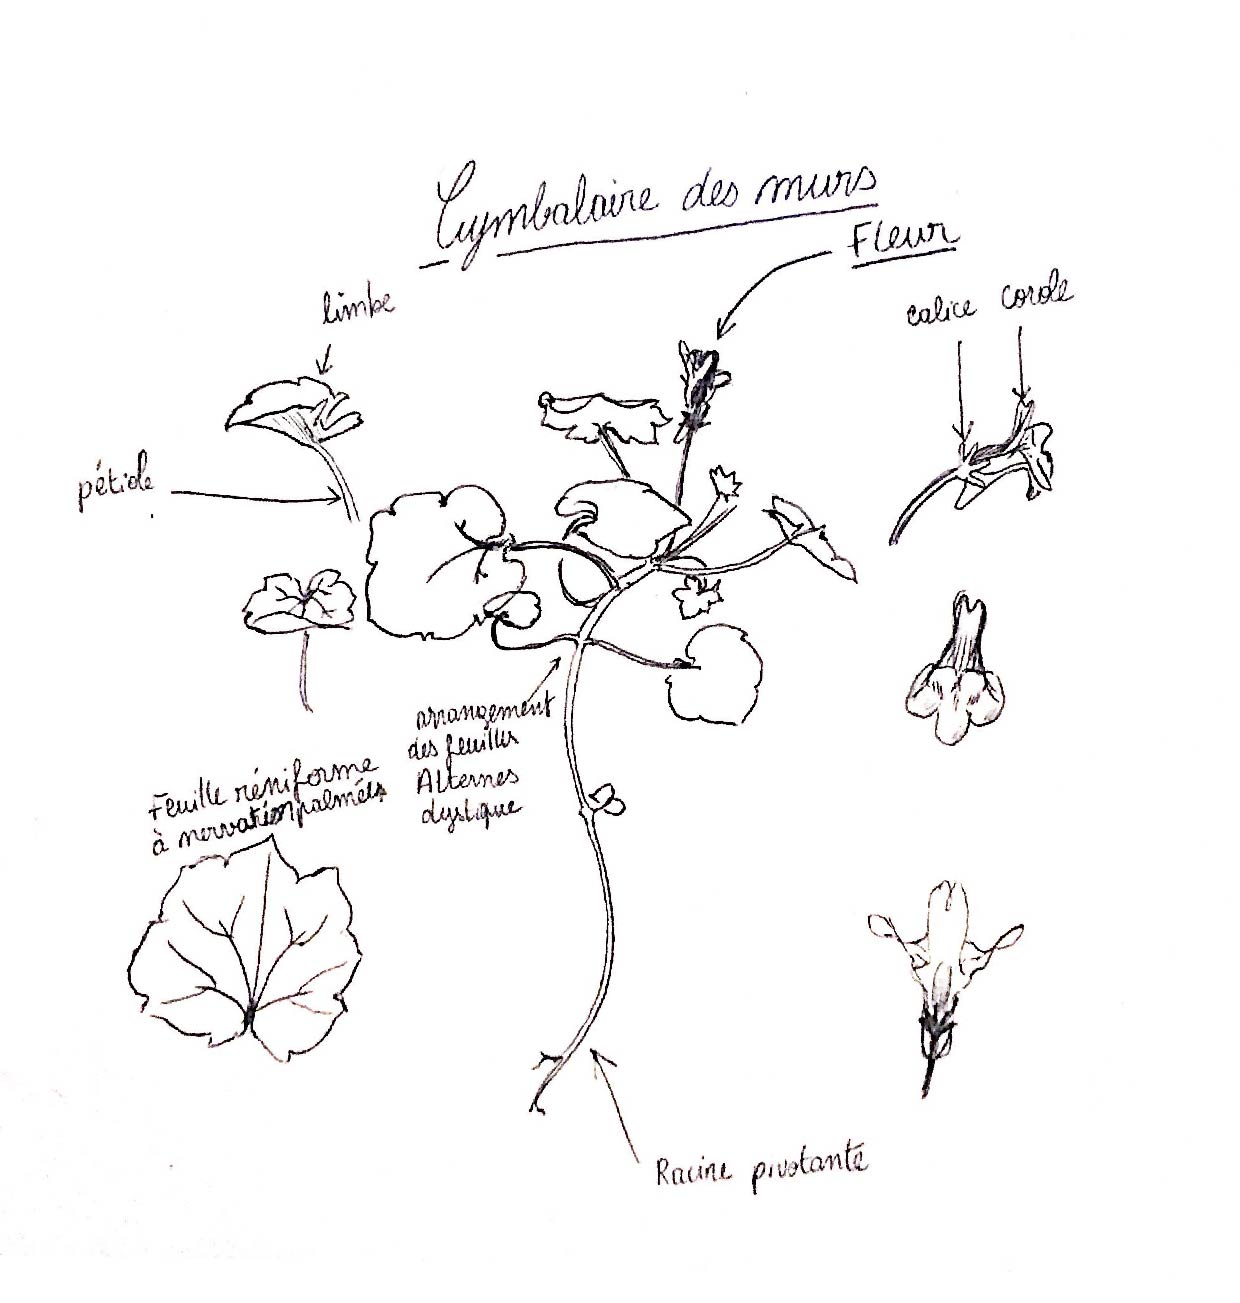 Cymbalaire des murs
Fleur
limbe
calice corole
pétiole
arrangement
des feuilles
Alternes
dystique
Feuille réniforme
à nervation palmées
Racine pivotante